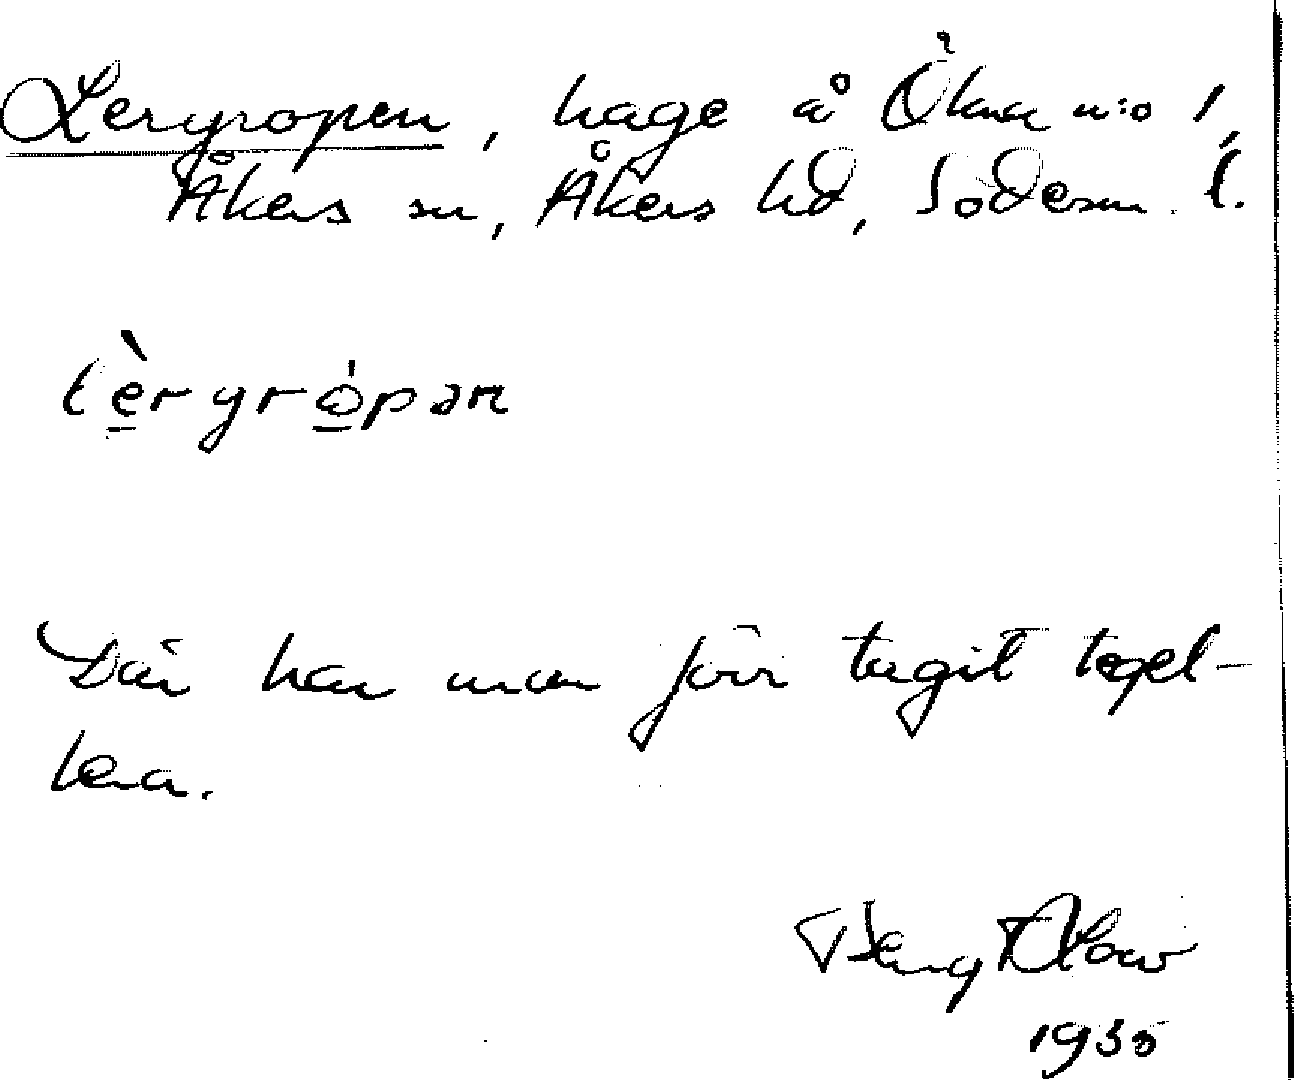 Lergropen, hage å Ökna n:o 1,
Åkers sn, Åkers hd, Söderm. l.
lè̱rgrò̱pən
Där har man förr tagit tegel-
lera.
1935